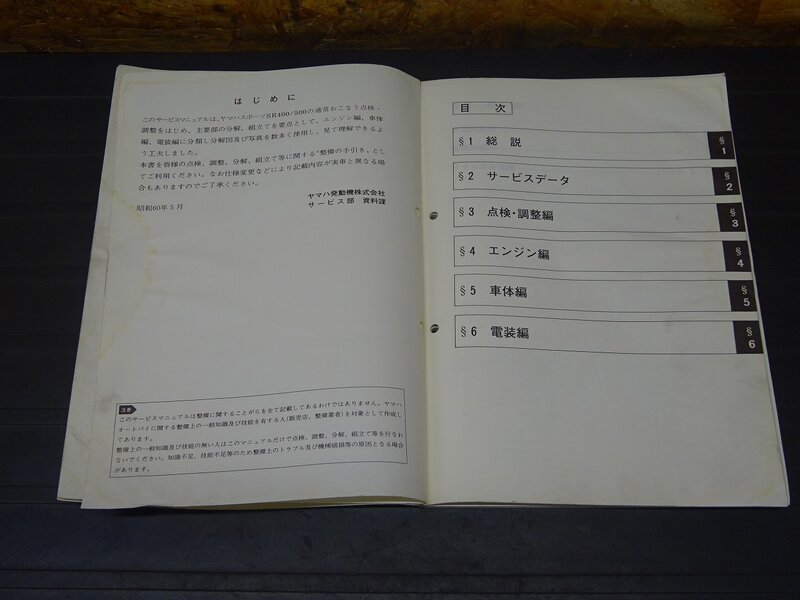 はじめに
このサービスマニュアルは、ヤマハスポーツSR400/500の通常おこなう点検・
調整をはじめ、主要部の分解、組立てを要点として、エンジン編、車体
編、電装編に分類し分解図及び写真を数多く使用し、見て理解できるよ
う工夫しました。
本書を皆様の点検、調整、分解、組立て等に関する"整備の手引き"とし
てご利用ください。なお仕様変更などにより記載内容が実車と異なる場
合もありますのでご了承ください。
ヤマハ発動機株式会社
サービス部 資料課
昭和60年5月
注意
このサービスマニュアルは整備に関することがらを全て記載してあるわけではありません。ヤマハ
オートバイに関する整備上の一般知識及び技能を有する人(販売店、整備業者)を対象として作成し
てあります。
整備上の一般知識及び技能の無い人はこのマニュアルだけで点検、調整、分解、組立て等を行なわ
ないでください。知識不足、技能不足等のため整備上のトラブル及び機械破損等の原因となる場合
があります。
目 次
§1 総 説
§1
§2 サービスデータ
§2
§3 点検・調整編
§3
§4 エンジン編
§4
§5 車体編
§5
§6 電装編
§6